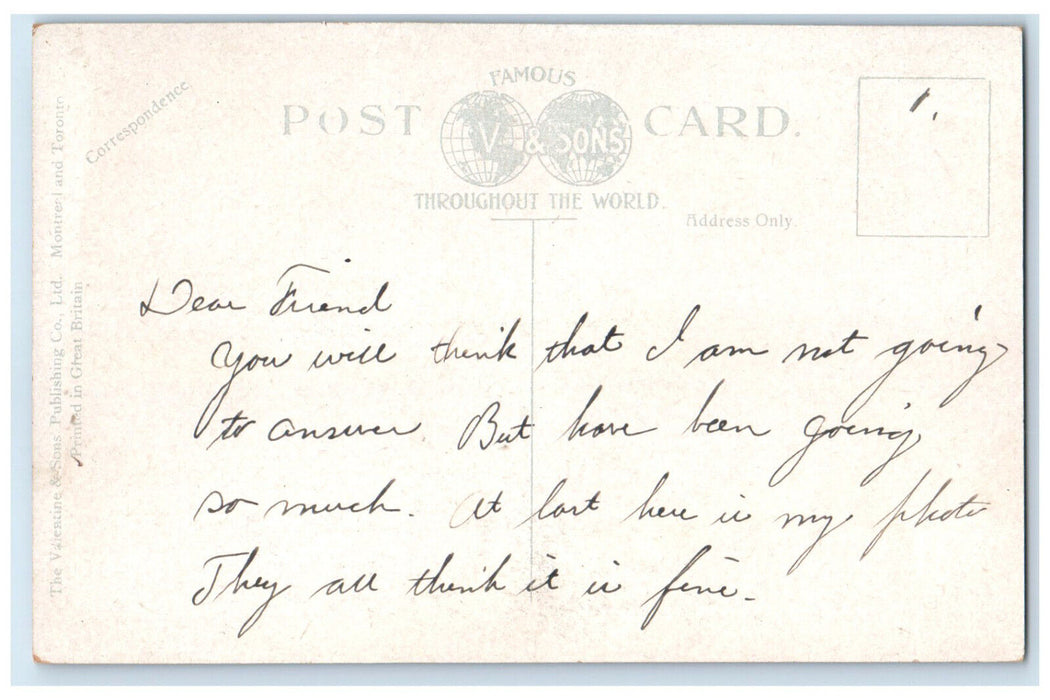 FAMOUS
POST V. & SONS CARD.
THROUGHOUT THE WORLD.
Correspondence
Address Only.
The Valentine & Sons Publishing Co., Ltd. Montreal and Toronto
Printed in Great Britain
1.
Dear Friend
You will think that I am not going
to answer But have been going
so much. At last here is my photo
They all think it is fine.